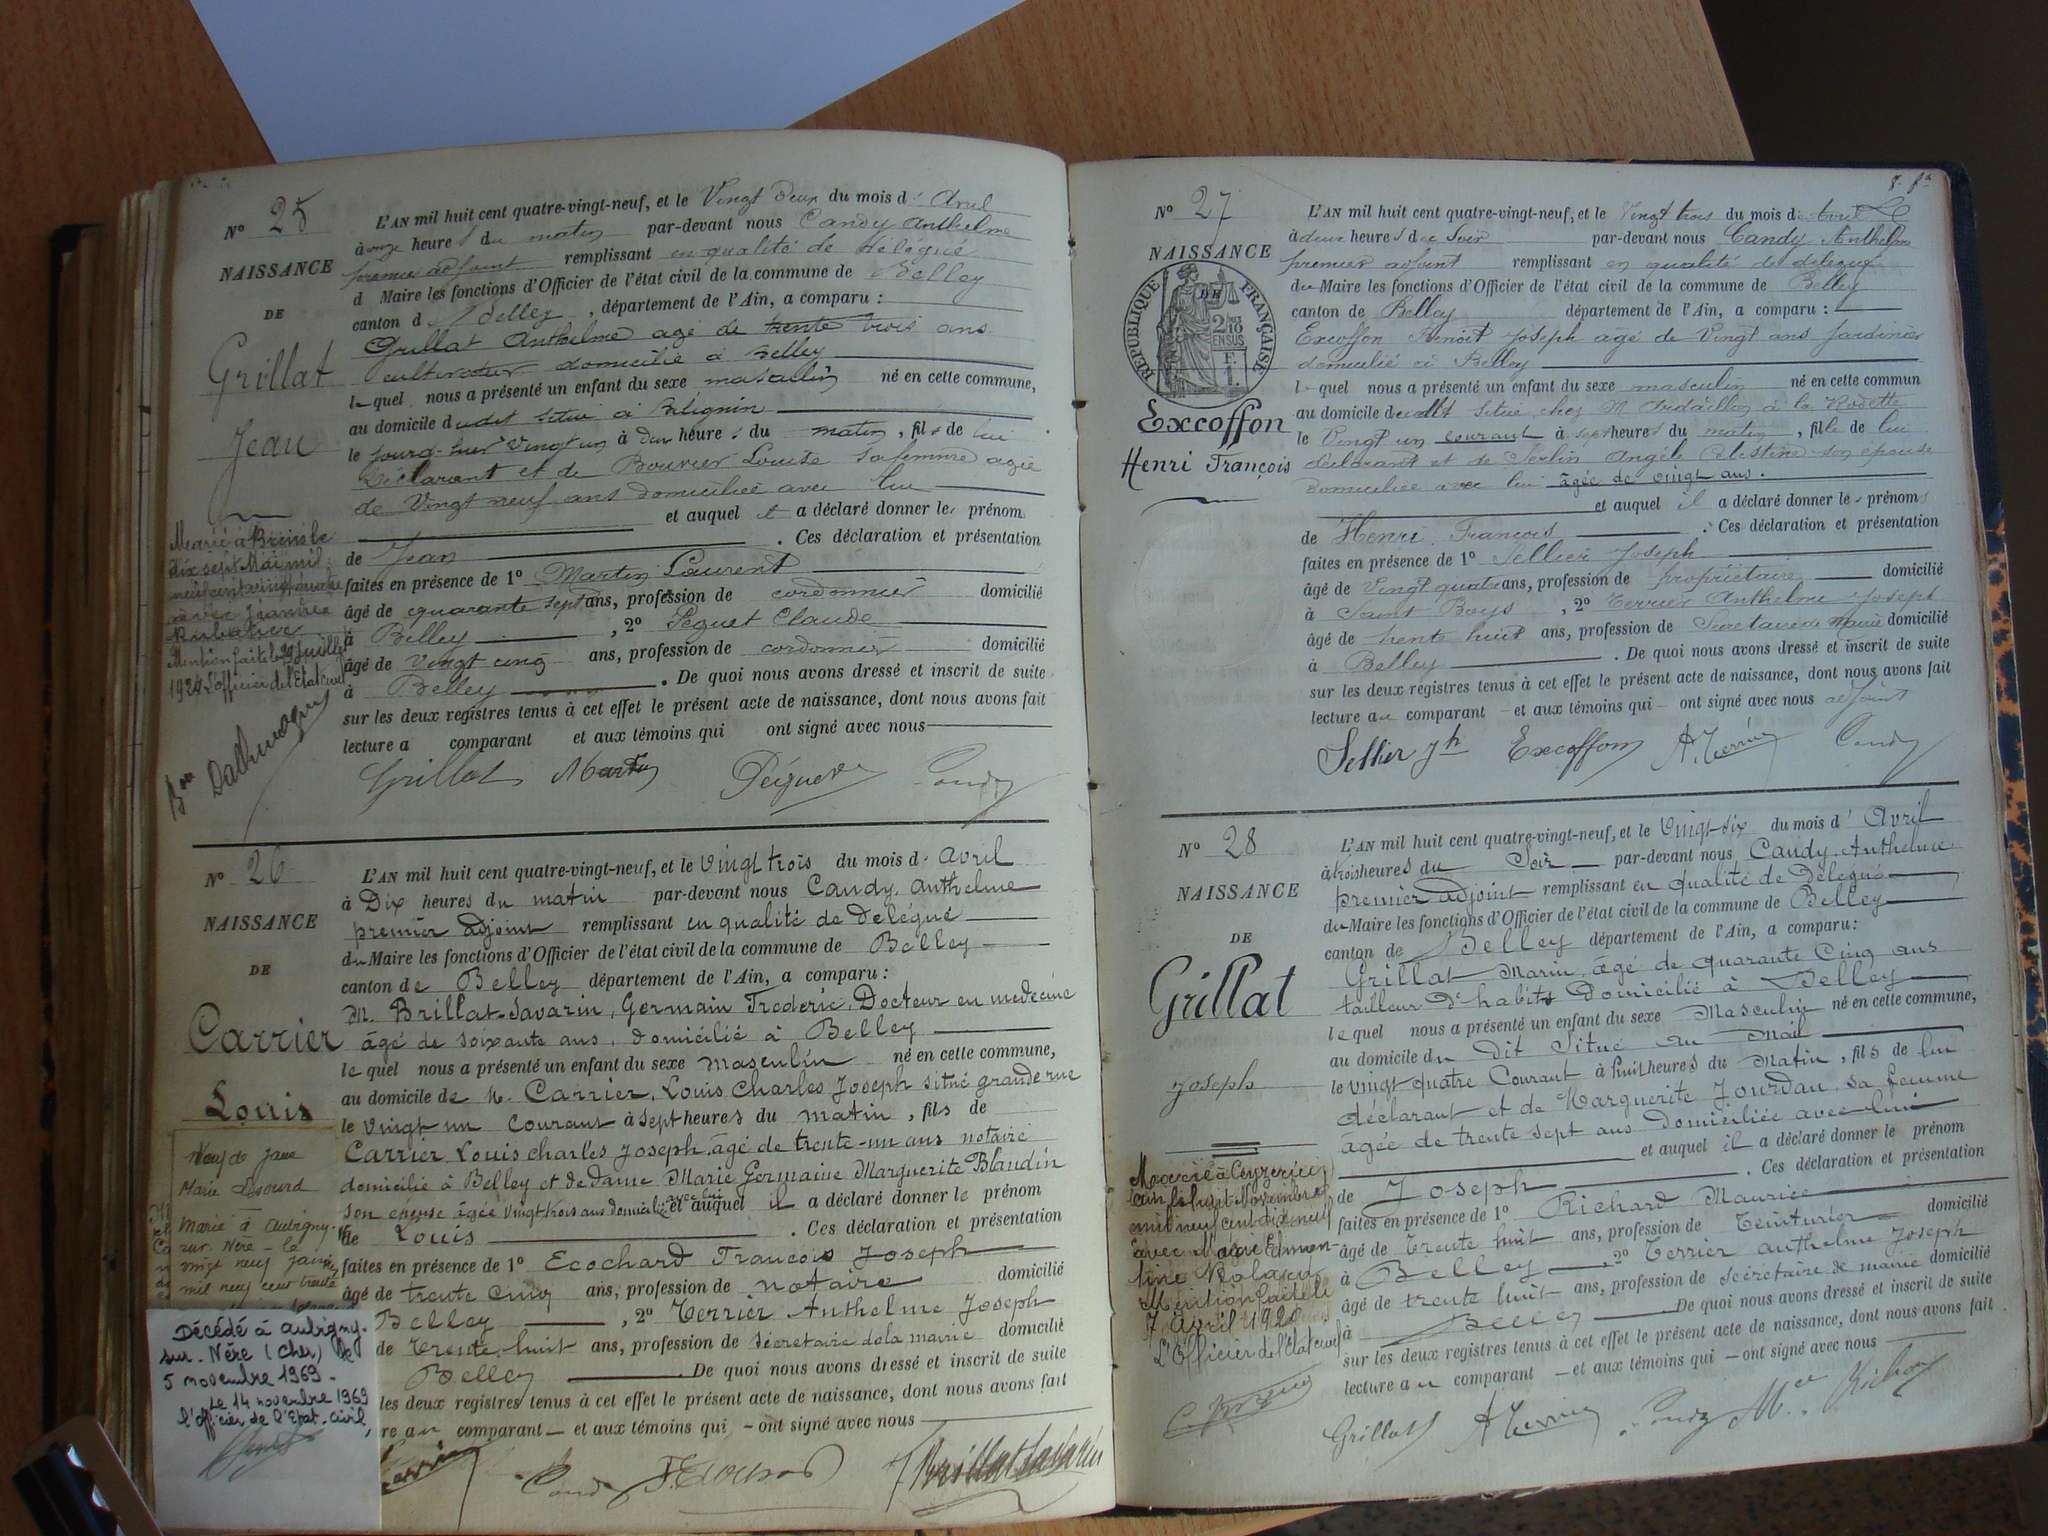 Nº 25
NAISSANCE
DE
Grillat
Jean
L'AN mil huit cent quatre-vingt-neuf, et le Vingt deux du mois d' Avril
à onze heures du matin par-devant nous Candy Anthelme
premier adjoint remplissant en qualité de délégué
d Maire les fonctions d'Officier de l'état civil de la commune de Belley
canton d Belley, département de l'Ain, a comparu :
Grillat Anthelme agé de trente trois ans
cultivateur domicilié à Belley
lequel nous a présenté un enfant du sexe masculin né en cette commune,
au domicile dudit situé à Bilignin
le jourd'hui vingt un à deux heures du matin, fils de lui
déclarant et de Bouvier Louise sa femme agée
de Vingt neuf ans domiciliée avec lui
et auquel il a déclaré donner le prénom
de Jean . Ces déclaration et présentation
faites en présence de 1º Martin Laurent
âgé de quarante sept ans, profession de cordonnier domicilié
à Belley, 2º Péguet Claude
âgé de vingt cinq ans, profession de cordonnier domicilié
à Belley . De quoi nous avons dressé et inscrit de suite
sur les deux registres tenus à cet effet le présent acte de naissance, dont nous avons fait
lecture a comparant et aux témoins qui ont signé avec nous
Grillat Martin Péguet Candy
Marié à Brens le
dix sept Mai mil
neuf cent vingt quatre
avec Jeanne
Mention faite le 29 Juillet
1924 L'officier de l'Etat civil
Nº 26
NAISSANCE
DE
Carrier
Louis
L'AN mil huit cent quatre-vingt-neuf, et le Vingt trois du mois d' Avril
à Dix heures du matin par-devant nous Candy, Anthelme
premier adjoint remplissant en qualité de délégué
du Maire les fonctions d'Officier de l'état civil de la commune de Belley
canton de Belley département de l'Ain, a comparu :
M. Brillat-Savarin, Germain Frederic, Docteur en medecine
âgé de soixante ans, domicilié à Belley
lequel nous a présenté un enfant du sexe masculin né en cette commune,
au domicile de M. Carrier, Louis Charles Joseph situé grande rue
le vingt un Courant à sept heures du matin, fils de
Carrier Louis Charles Joseph, âgé de trente-un ans notaire
domicilié à Belley et de Dame Marie Germaine Marguerite Blandin
son épouse âgée vingt trois ans domiciliée avec lui et auquel il a déclaré donner le prénom
de Louis . Ces déclaration et présentation
faites en présence de 1º Ecochard François Joseph
âgé de trente cinq ans, profession de notaire domicilié
Belley, 2º Terrier Anthelme Joseph
de Trente huit ans, profession de secrétaire de la mairie domicilié
Belley . De quoi nous avons dressé et inscrit de suite
les deux registres tenus à cet effet le présent acte de naissance, dont nous avons fait
re au comparant et aux témoins qui ont signé avec nous
Candy F. Ecochard Brillat Savarin
Veuf de Jane
Marie Lesourd
Marié à Aubigny-
sur-Nère le
vingt neuf janvier
mil neuf cent trente
Décédé à Aubigny-
sur-Nère (Cher) le
5 novembre 1969.
Le 14 novembre 1969
l'officier de l'Etat-civil,
8. fº
Nº 27
NAISSANCE
DE
RÉPUBLIQUE FRANÇAISE
Excoffon
Henri François
L'AN mil huit cent quatre-vingt-neuf, et le Vingt trois du mois d' Avril
à deux heures du Soir par-devant nous Candy Anthelme
premier adjoint remplissant en qualité de délégué
du Maire les fonctions d'Officier de l'état civil de la commune de Belley
canton de Belley département de l'Ain, a comparu :
Excoffon Benoit Joseph agé de Vingt ans Jardinier
domicilié à Belley
lequel nous a présenté un enfant du sexe masculin né en cette commun
au domicile dudit situé chez M à la Rodette
le Vingt un courant à sept heures du matin, fils de lui
déclarant et de Angèle Celestine son épouse
domiciliée avec lui âgée de vingt ans.
et auquel il a déclaré donner les prénoms
de Henri François . Ces déclaration et présentation
faites en présence de 1º Sellier Joseph
âgé de Vingt quatre ans, profession de propriétaire domicilié
à Saint Boys, 2º Terrier Anthelme Joseph
âgé de trente huit ans, profession de Secretaire de Mairie domicilié
à Belley . De quoi nous avons dressé et inscrit de suite
sur les deux registres tenus à cet effet le présent acte de naissance, dont nous avons fait
lecture au comparant et aux témoins qui ont signé avec nous adjoint
Sellier Jh Excoffon A. Terrier Candy
Nº 28
NAISSANCE
DE
Grillat
Joseph
L'AN mil huit cent quatre-vingt-neuf, et le Vingt-six du mois d' Avril
à trois heures du Soir par-devant nous Candy, Anthelme
premier adjoint remplissant en qualité de Délégué
du Maire les fonctions d'Officier de l'état civil de la commune de Belley
canton de Belley département de l'Ain, a comparu :
Grillat Marin, âgé de quarante cinq ans
tailleur d'habits Domicilié à Belley
lequel nous a présenté un enfant du sexe Masculin né en cette commune,
au domicile du Dit Situé au Mail
le vingt quatre Courant à huit heures du Matin, fils de lui
déclarant et de Marguerite Jourdan, sa femme
âgée de trente sept ans Domiciliée avec lui
et auquel il a déclaré donner le prénom
de Joseph . Ces déclaration et présentation
faites en présence de 1º Richard Maurice
âgé de Trente huit ans, profession de Teinturier domicilié
à Belley, 2º Terrier Anthelme Joseph
âgé de trente huit ans, profession de secrétaire de mairie domicilié
à Belley De quoi nous avons dressé et inscrit de suite
sur les deux registres tenus à cet effet le présent acte de naissance, dont nous avons fait
lecture au comparant et aux témoins qui ont signé avec nous
Grillat A Terrier Candy Mce Richard
Marié à Ceyzérieu
Novembre
mil neuf cent dix neuf
avec Marie
Mention faite le
7 Avril 1920
L'Officier de l'Etat civil